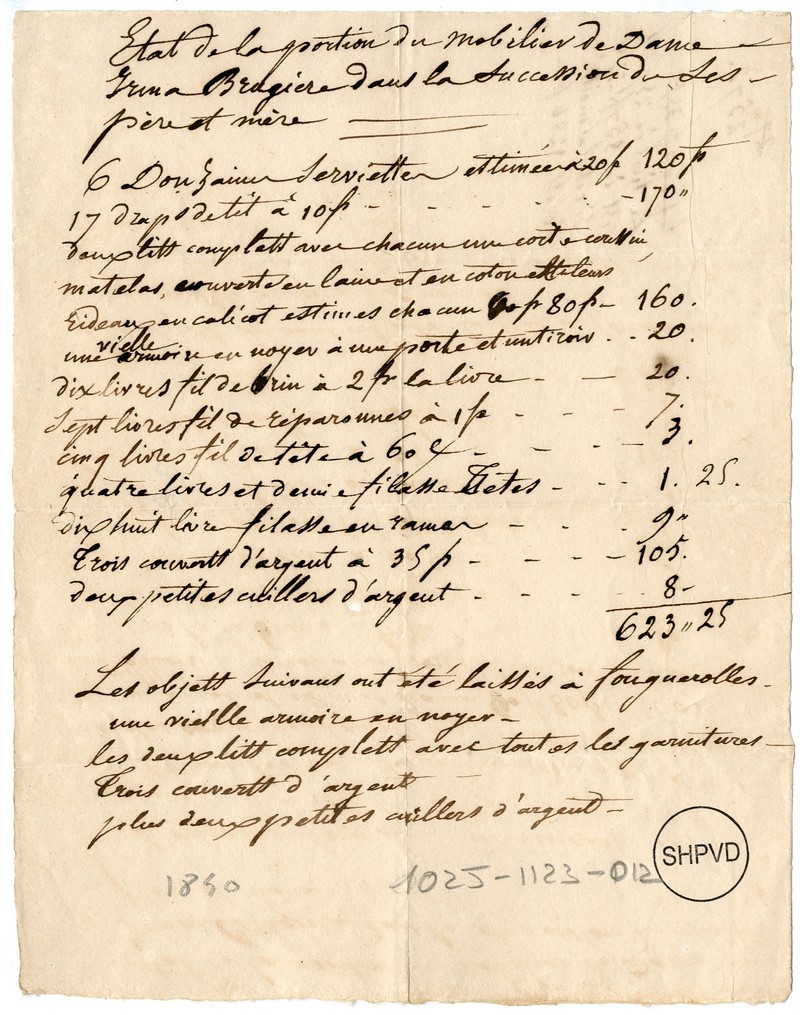 Etat de la portion du mobilier de Dame
Irma Brugiere dans la Succession de Ses
père et mère
6 Douzaines Serviettes estimées à 20f 120f
17 draps de lit à 10f - 170"
deux litt complett avec chacun une coite coussin,
matelas, couverte en laine et en coton et leurs
rideaux en calicot estimés chacun 80f - 160.
une vielle armoire en noyer à une porte et un tiroir. - 20.
dix livres fil de brin à 2f la livre - 20.
Sept livres fil de réparonnes à 1f - 7.
cinq livres fil de tète à 60c - 3.
quatre livres et demie filasse Tetes - 1. 25.
dix huit livre filasse en rames - 9"
Trois couvertt d'argent à 35f - 105.
deux petites cuillers d'argent - 8-
623" 25
Les objett suivans ont été laissés à fouguerolles -
une vielle armoire en noyer -
les deux litt complett avec toutes les garnitures -
Trois couvertt d'argent
plus deux petites cuillers d'argent -
1025-1123-012
SHPVD